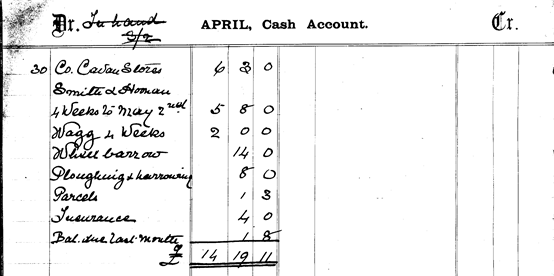 Dr. In hand APRIL, Cash Account. Cr.
3/2
30 Co. Cavan Stores 6 3 0
Smith &
4 Weeks to May 2nd 5 8 0
Wagg 4 Weeks 2 0 0
Wheel barrow 14 0
Ploughing & harrowing 8 0
Parcels 1 3
Insurance 4 0
Bal. due last month 1 8
£ 14 19 11